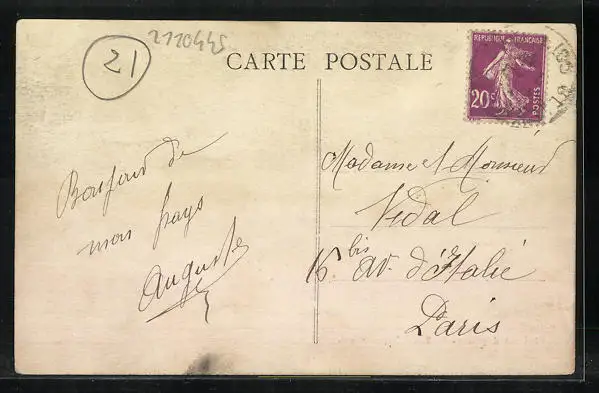 21
2110445
CARTE POSTALE
REPUBLIQUE FRANÇAISE
20c
POSTES
Bonjour de
mon pays
Auguste
Madame et Monsieur
Vidal
16 bis av. d'Italie
Paris